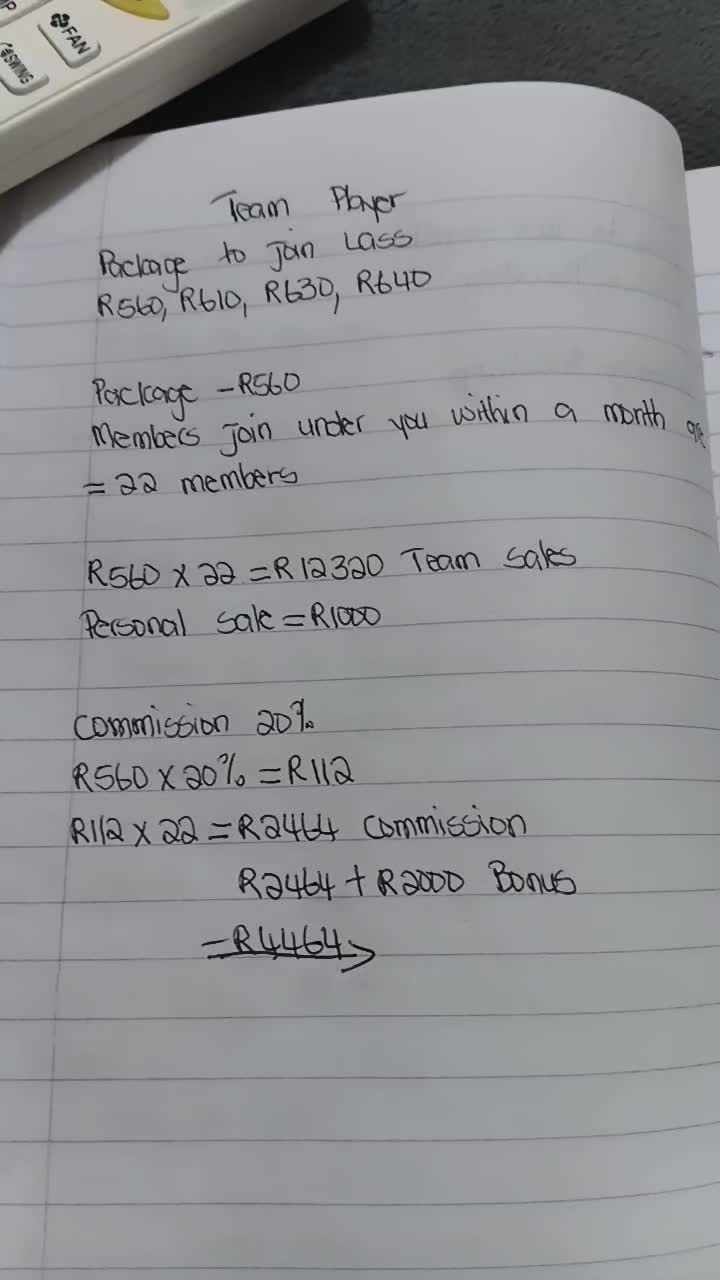 P
FAN
SWING
Team Player
Package to join Lass
R560, R610, R630, R640
Package - R560
Members join under you within a month are
= 22 members
R560 x 22 = R12320 Team sales
Personal sale = R1000
Commission 20%
R560 x 20% = R112
R112 x 22 = R2464 Commission
R2464 + R2000 Bonus
= R4464